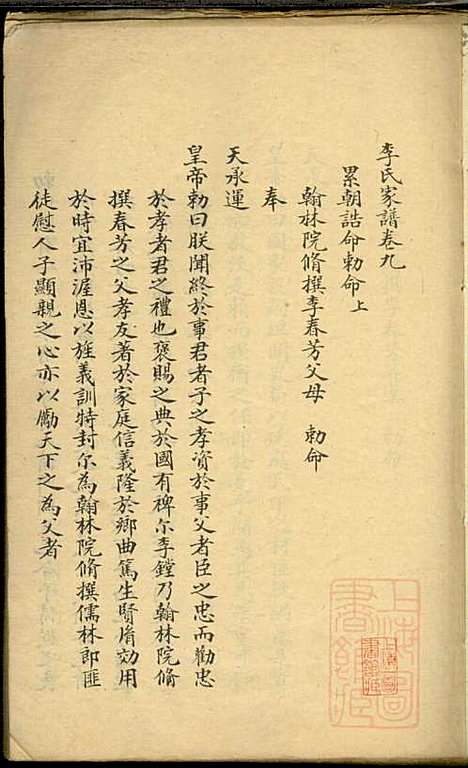 李氏家譜卷九
累朝誥命勅命上
翰林院脩撰李春芳父母 勅命
奉
天承運
皇帝勅曰朕聞終於事君者子之孝資於事父者臣之忠而勸忠
於孝者君之禮也褒賜之典於國有裨尒李鏜乃翰林院脩
撰春芳之父孝友著於家庭信義隆於鄉曲篤生賢胤効用
於時宜沛渥恩以旌義訓特封尒為翰林院脩撰儒林郎匪
徒慰人子顯親之心亦以勵天下之為父者
上海圖
書館藏